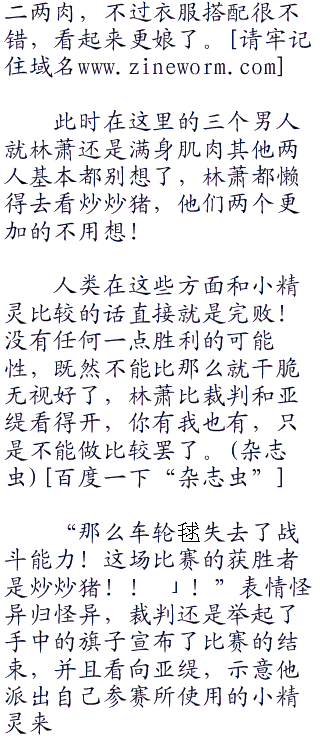 二两肉，不过衣服搭配很不
错，看起来更娘了。[请牢记
住域名www.zineworm.com]
此时在这里的三个男人
就林萧还是满身肌肉其他两
人基本都别想了，林萧都懒
得去看炒炒猪，他们两个更
加的不用想！
人类在这些方面和小精
灵比较的话直接就是完败！
没有任何一点胜利的可能
性，既然不能比那么就干脆
无视好了，林萧比裁判和亚
缇看得开，你有我也有，只
是不能做比较罢了。(杂志
虫)[百度一下“杂志虫”]
“那么车轮毬失去了战
斗能力！这场比赛的获胜者
是炒炒猪！！」！”表情怪
异归怪异，裁判还是举起了
手中的旗子宣布了比赛的结
束，并且看向亚缇，示意他
派出自己参赛所使用的小精
灵来